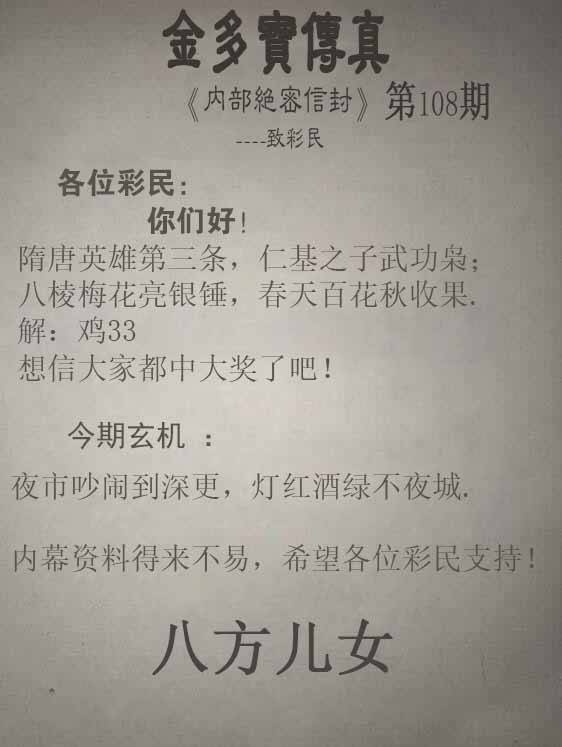 金多寶傳真
《内部絕密信封》第108期
----致彩民
各位彩民:
你们好!
隋唐英雄第三条，仁基之子武功枭;
八棱梅花亮银锤，春天百花秋收果.
解：鸡33
想信大家都中大奖了吧!
今期玄机 ：
夜市吵闹到深更，灯红酒绿不夜城.
内幕资料得来不易，希望各位彩民支持!
八方儿女